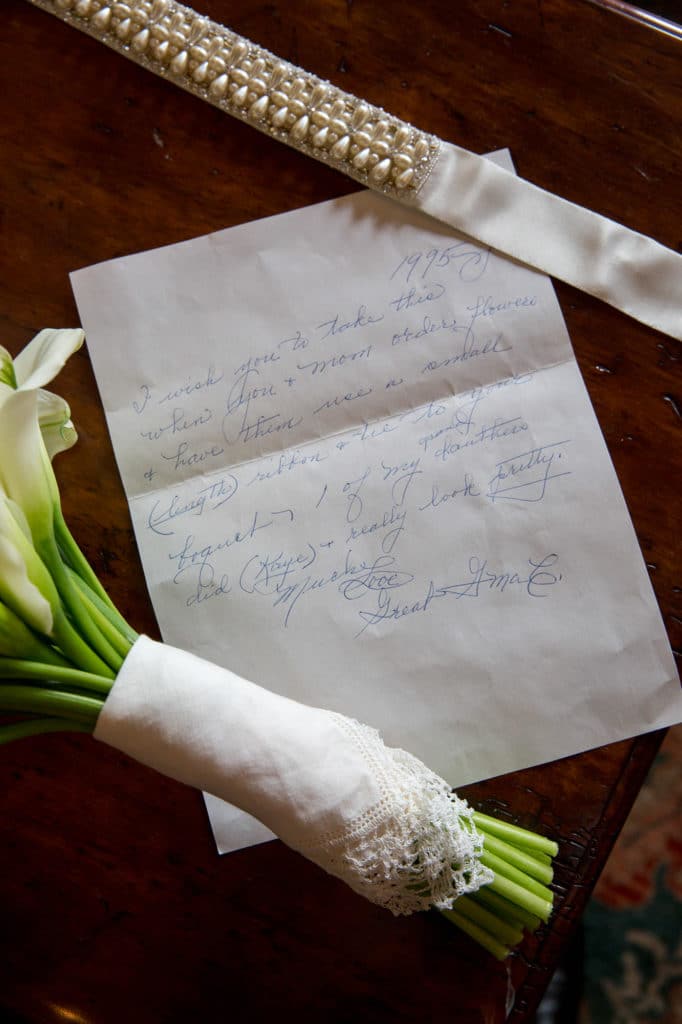 1995
I wish you to take this
when you + mom order flowers
+ have them use a small
(length) ribbon + tie to your
boquet, 1 of my grand daughters
did (Kaye) + really look pretty.
Much Love
Great G'ma C.